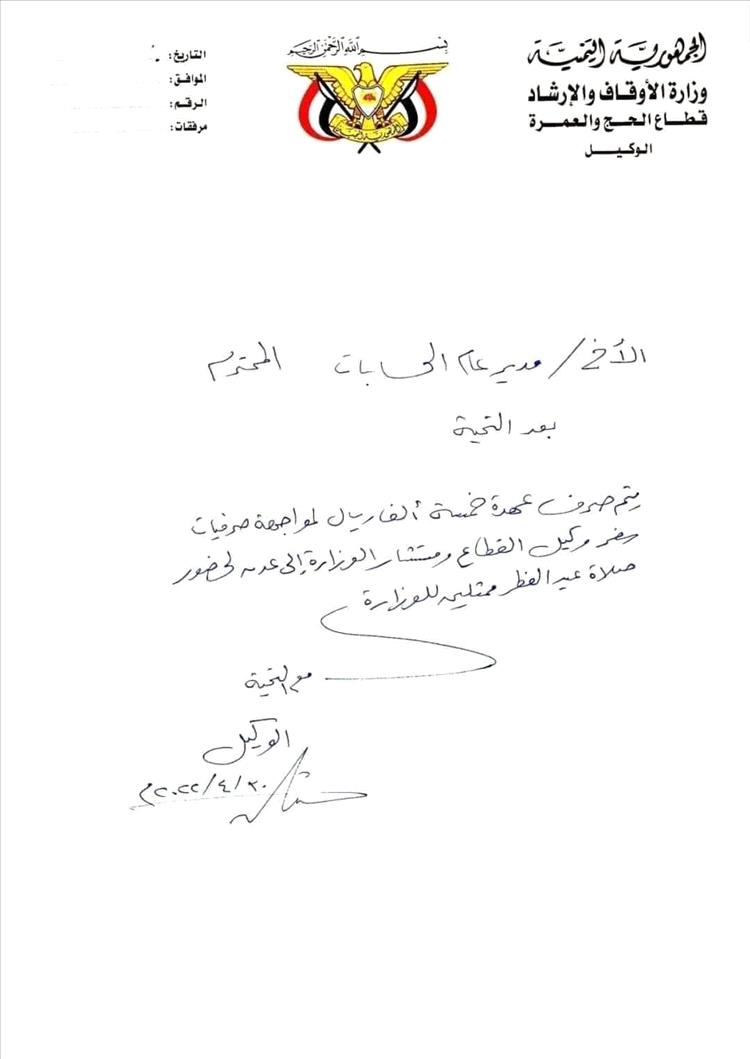 الجمهورية اليمنية
وزارة الأوقاف والإرشاد
قطاع الحج والعمرة
الوكيل
بسم الله الرحمن الرحيم
التاريخ:
الموافق:
الرقم:
مرفقات:
الأخ / مدير عام الحسابات المحترم
بعد التحية
يتم صرف عهدة خمسة ألف ريال لمواجهة صرفيات
سفر وكيل القطاع ومستشار الوزارة إلى عدن لحضور
صلاة عيد الفطر ممثلين للوزارة
مع التحية
الوكيل
٣٠/٤/٢٠٢٢م